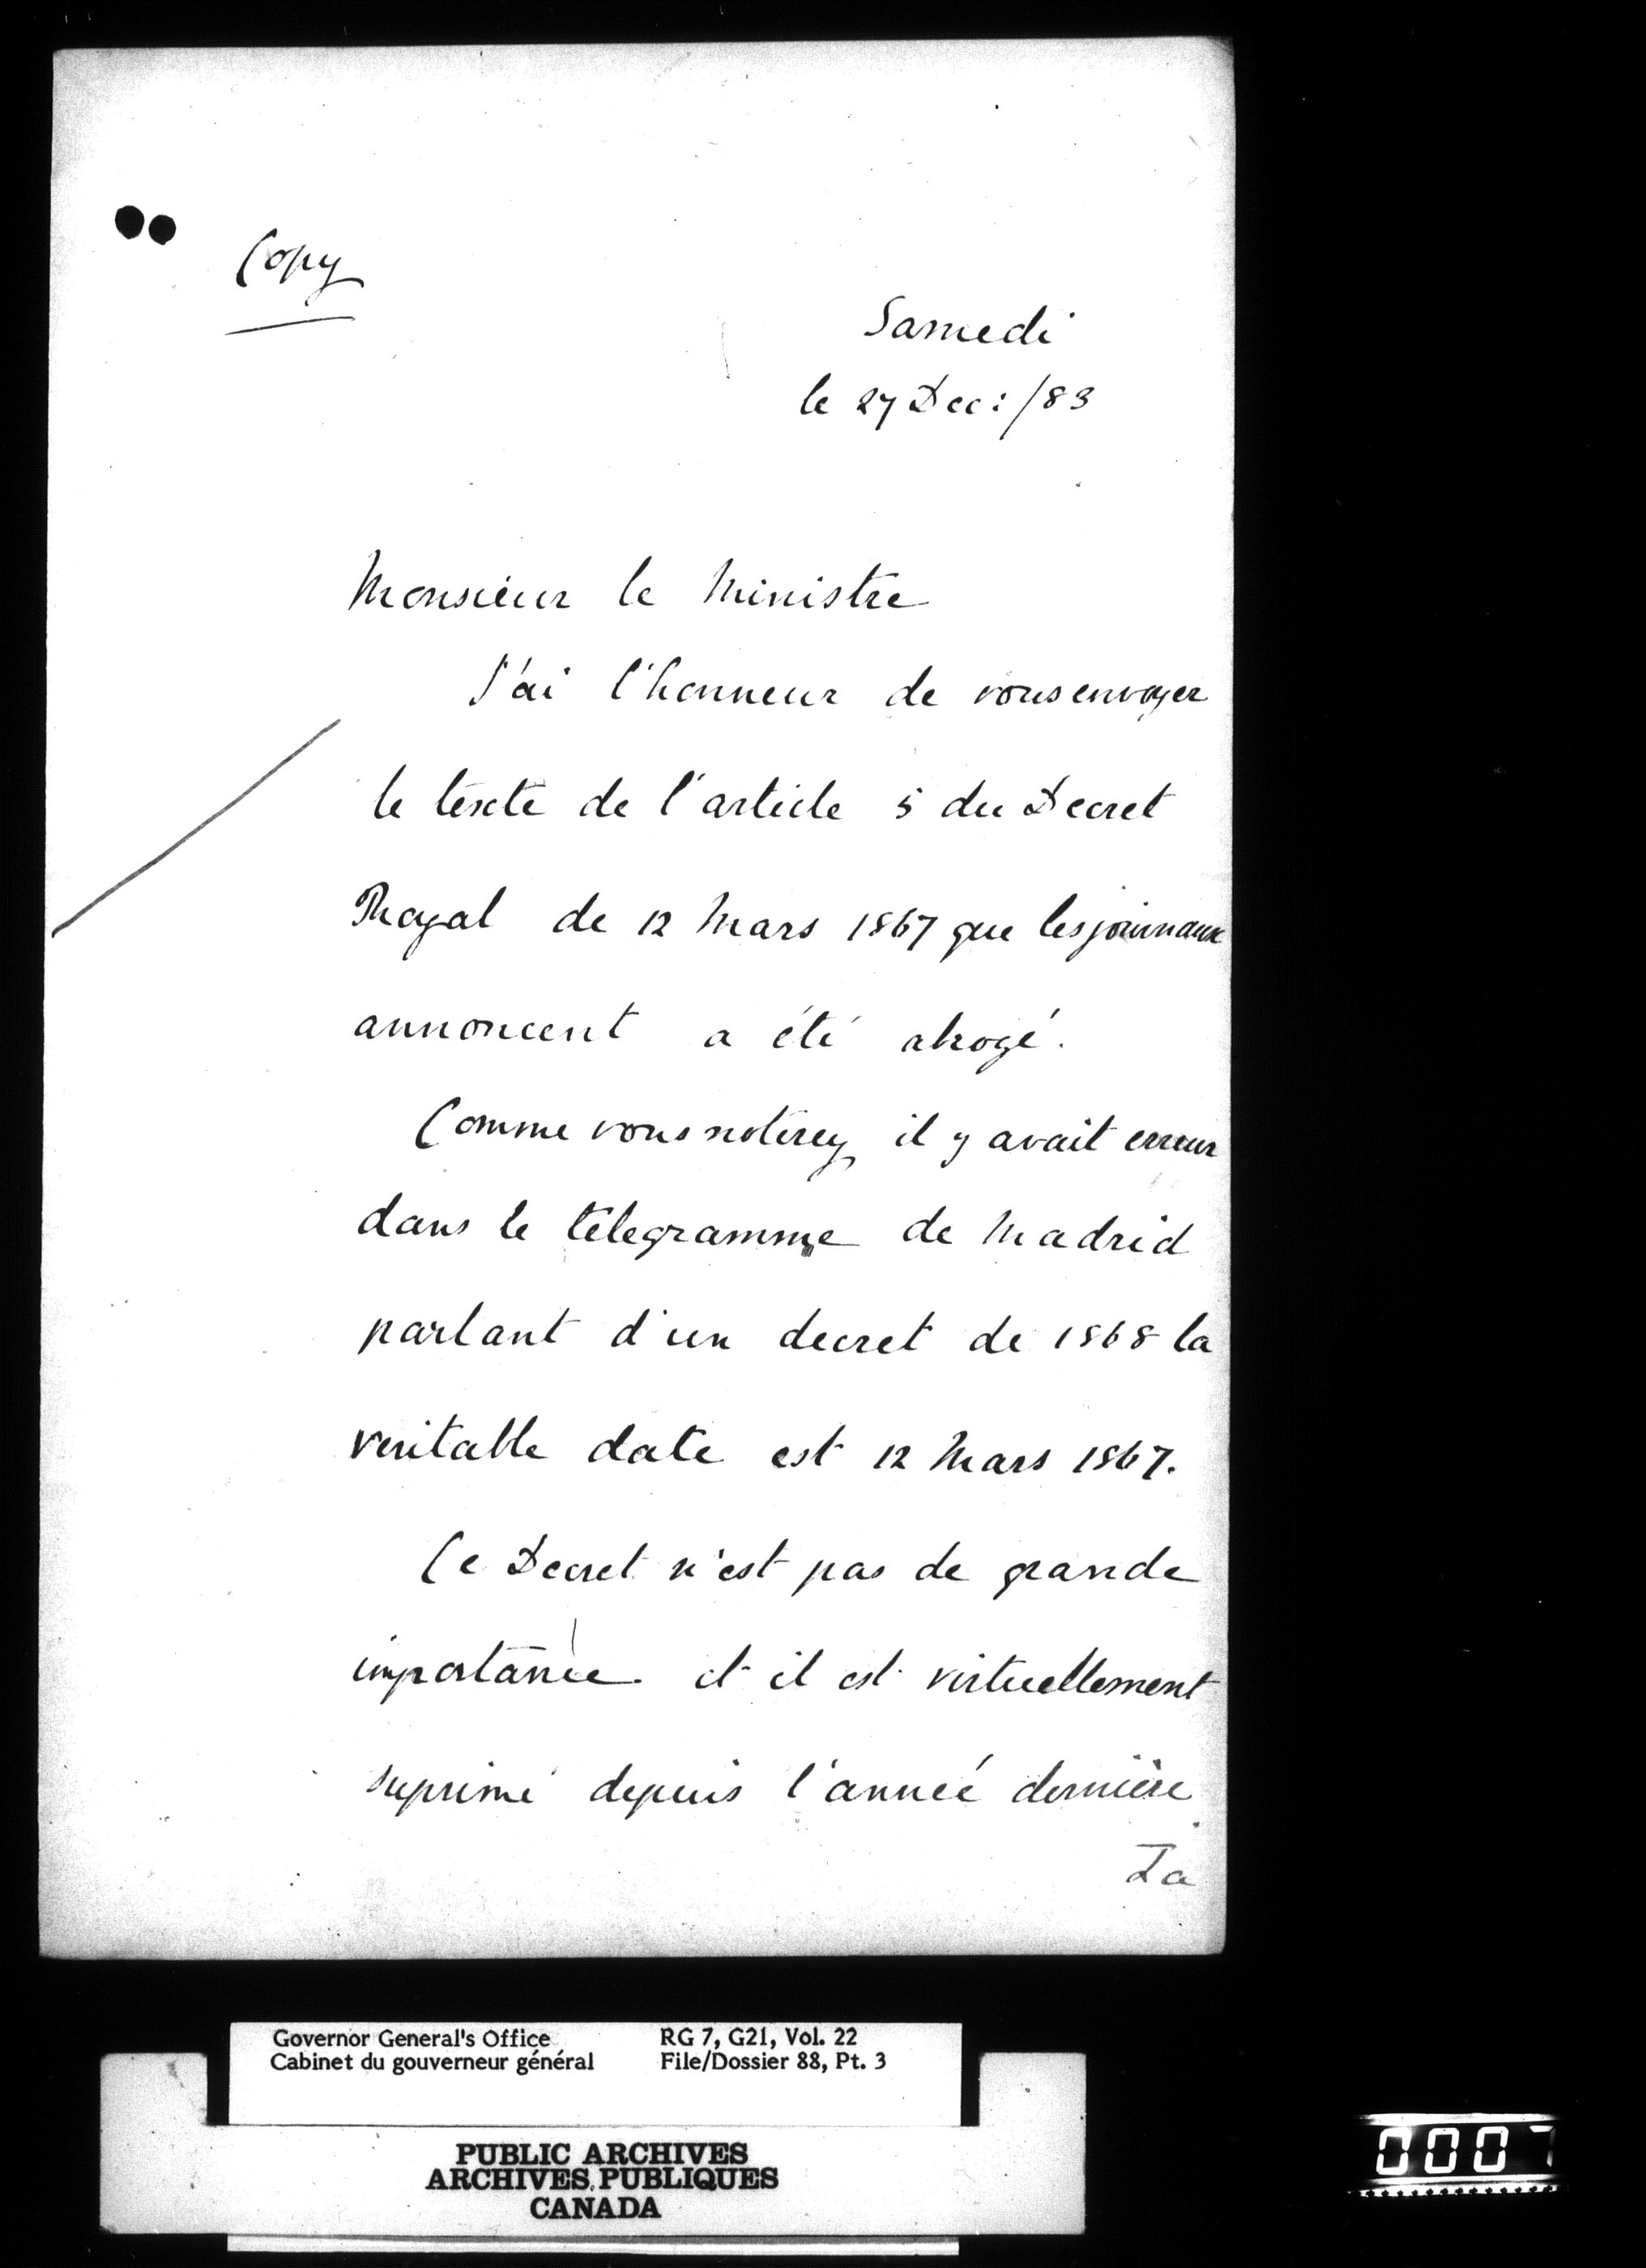 Copy
Samedi
le 27 Dec: /83
Monsieur le Ministre
J'ai l'honneur de vous envoyer
le texte de l'article 5 du Decret
Royal de 12 Mars 1867 que les journaux
annoncent a été abrogé.
Comme vous noterez il y avait erreur
dans le télegramme de Madrid
parlant d'un decret de 1868 la
veritable date est 12 Mars 1867.
Ce Decret n'est pas de grande
importance et il est virtuellement
suprimé depuis l'anneé dernière
La
Governor General's Office RG 7, G21, Vol. 22
Cabinet du gouverneur général File/Dossier 88, Pt. 3
PUBLIC ARCHIVES
ARCHIVES PUBLIQUES
CANADA
0007